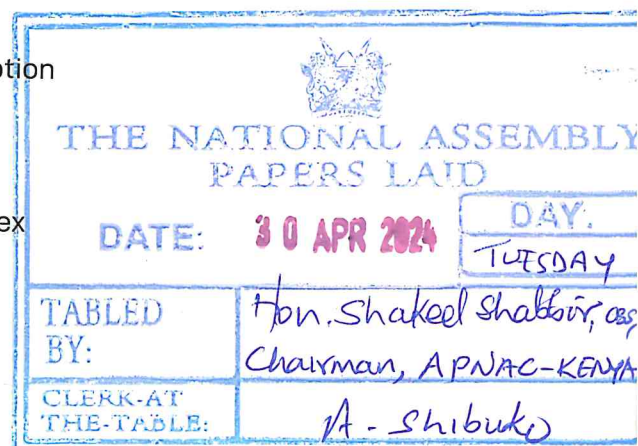 ption
THE NATIONAL ASSEMBLY
PAPERS LAID
DATE: 30 APR 2024
DAY:
TUESDAY
ex
TABLED BY:
Hon. Shakeel Shabbir, CBS,
Chairman, APNAC-KENYA
CLERK-AT THE-TABLE:
A. Shibuko